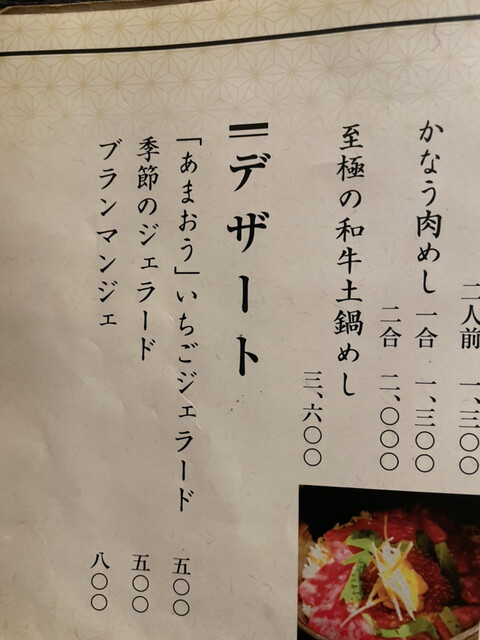 二人前 一、三〇〇
かなう肉めし 一合 一、三〇〇
二合 二、〇〇〇
至極の和牛土鍋めし
三、六〇〇
デザート
「あまおう」いちごジェラード 五〇〇
季節のジェラード 五〇〇
ブランマンジェ 八〇〇